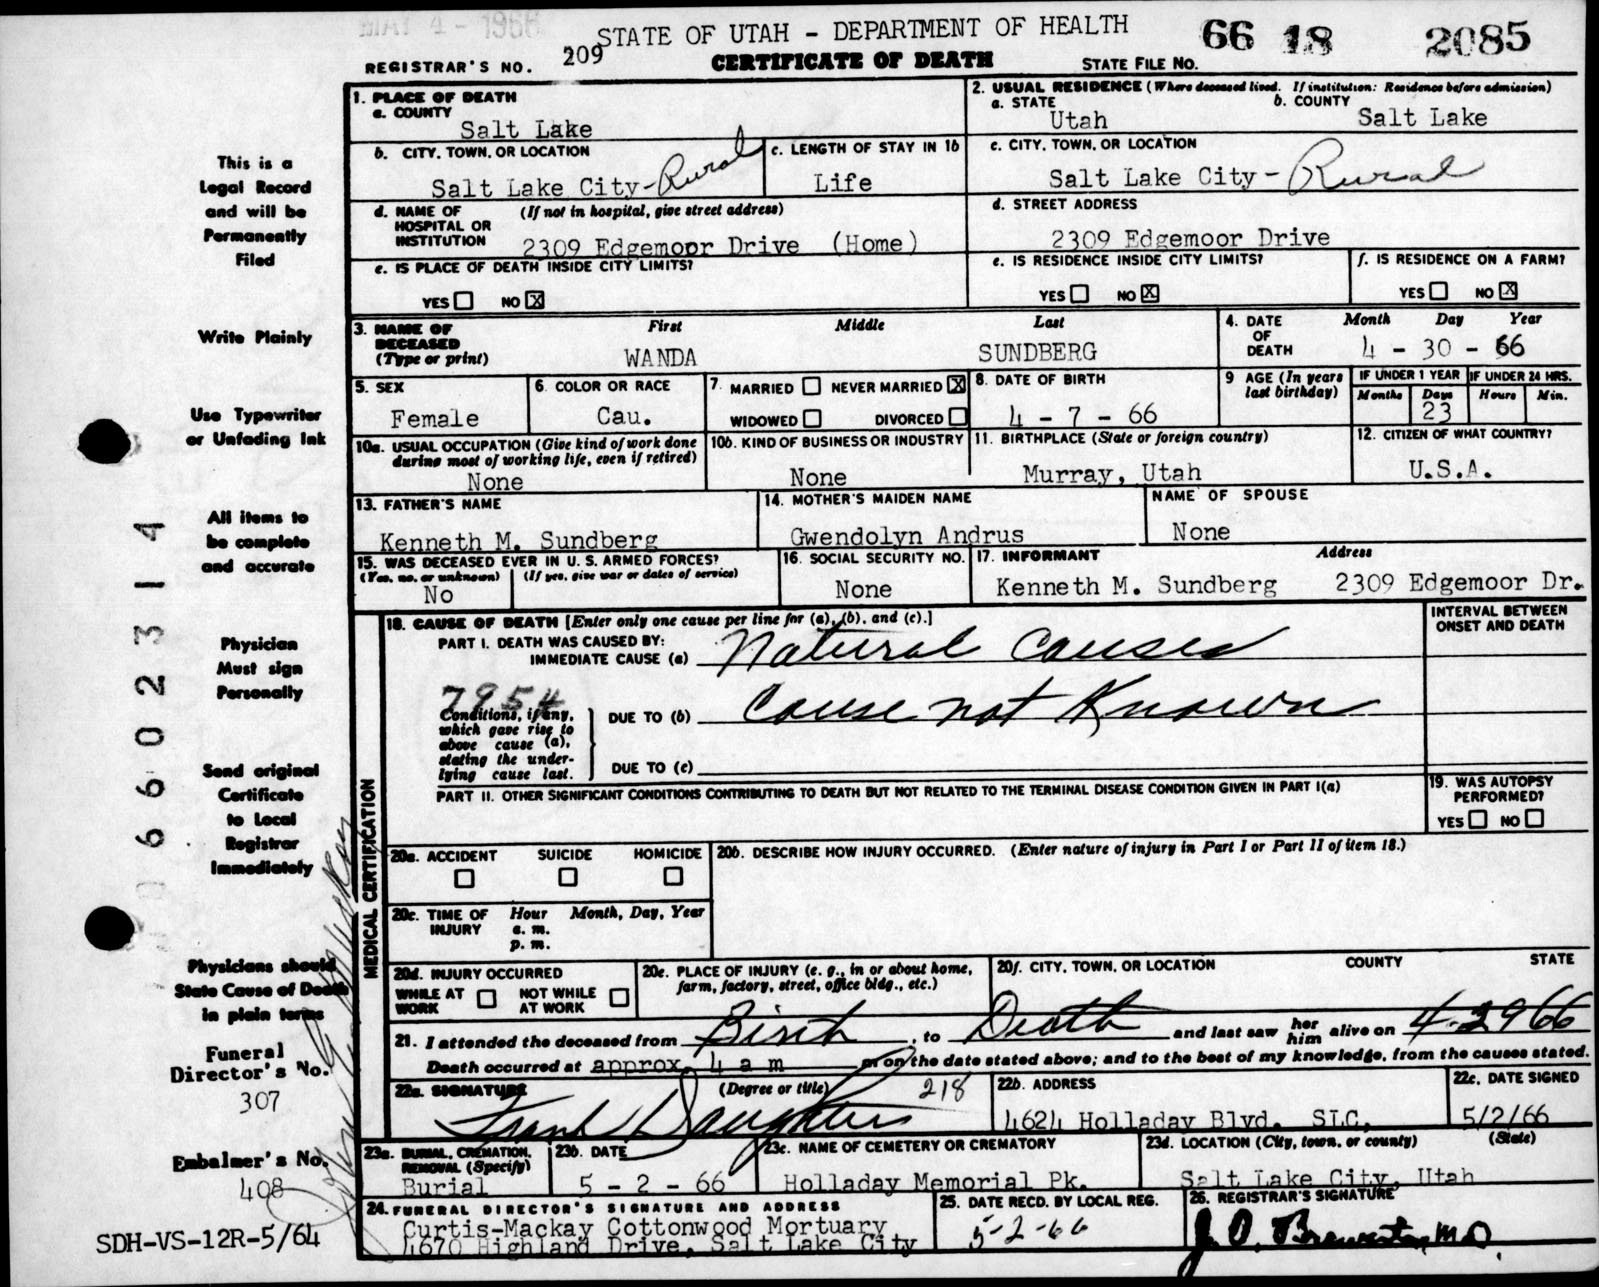 MAY 4 - 1966
STATE OF UTAH - DEPARTMENT OF HEALTH
66 18 2085
REGISTRAR'S NO. 209 CERTIFICATE OF DEATH STATE FILE NO.
1. PLACE OF DEATH
a. COUNTY
Salt Lake
2. USUAL RESIDENCE (Where deceased lived. If institution: Residence before admission)
a. STATE b. COUNTY
Utah Salt Lake
b. CITY, TOWN, OR LOCATION
Salt Lake City-Rural
c. LENGTH OF STAY IN 1b
Life
c. CITY, TOWN, OR LOCATION
Salt Lake City- Rural
d. NAME OF HOSPITAL OR INSTITUTION (If not in hospital, give street address)
2309 Edgemoor Drive (Home)
d. STREET ADDRESS
2309 Edgemoor Drive
e. IS PLACE OF DEATH INSIDE CITY LIMITS?
YES NO X
e. IS RESIDENCE INSIDE CITY LIMITS?
YES NO X
f. IS RESIDENCE ON A FARM?
YES NO X
3. NAME OF DECEASED (Type or print) First Middle Last
WANDA SUNDBERG
4. DATE OF DEATH Month Day Year
4 - 30 - 66
5. SEX
Female
6. COLOR OR RACE
Cau.
7. MARRIED NEVER MARRIED X
WIDOWED DIVORCED
8. DATE OF BIRTH
4 - 7 - 66
9 AGE (In years last birthday)
IF UNDER 1 YEAR IF UNDER 24 HRS.
Months Days Hours Min.
23
10a. USUAL OCCUPATION (Give kind of work done during most of working life, even if retired)
None
10b. KIND OF BUSINESS OR INDUSTRY
None
11. BIRTHPLACE (State or foreign country)
Murray, Utah
12. CITIZEN OF WHAT COUNTRY?
U.S.A.
13. FATHER'S NAME
Kenneth M. Sundberg
14. MOTHER'S MAIDEN NAME
Gwendolyn Andrus
NAME OF SPOUSE
None
15. WAS DECEASED EVER IN U. S. ARMED FORCES?
(Yes, no, or unknown) (If yes, give war or dates of service)
No
16. SOCIAL SECURITY NO.
None
17. INFORMANT Address
Kenneth M. Sundberg 2309 Edgemoor Dr.
MEDICAL CERTIFICATION
18. CAUSE OF DEATH [Enter only one cause per line for (a), (b), and (c).]
INTERVAL BETWEEN ONSET AND DEATH
PART I. DEATH WAS CAUSED BY:
IMMEDIATE CAUSE (a) Natural Causes
7954
Conditions, if any, which gave rise to above cause (a), stating the underlying cause last.
DUE TO (b) Cause not Known
DUE TO (c)
PART II. OTHER SIGNIFICANT CONDITIONS CONTRIBUTING TO DEATH BUT NOT RELATED TO THE TERMINAL DISEASE CONDITION GIVEN IN PART I(a)
19. WAS AUTOPSY PERFORMED?
YES NO
20a. ACCIDENT SUICIDE HOMICIDE
20b. DESCRIBE HOW INJURY OCCURRED. (Enter nature of injury in Part I or Part II of item 18.)
20c. TIME OF INJURY Hour Month, Day, Year
a. m.
p. m.
20d. INJURY OCCURRED
WHILE AT WORK NOT WHILE AT WORK
20e. PLACE OF INJURY (e. g., in or about home, farm, factory, street, office bldg., etc.)
20f. CITY, TOWN, OR LOCATION COUNTY STATE
21. I attended the deceased from Birth, to Death and last saw her him alive on 4-29 66
Death occurred at approx. 4 a m on the date stated above; and to the best of my knowledge, from the causes stated.
22a. SIGNATURE (Degree or title) 218
22b. ADDRESS
4624 Holladay Blvd. SLC,
22c. DATE SIGNED
5/2/66
23a. BURIAL, CREMATION, REMOVAL (Specify)
Burial
23b. DATE
5 - 2 - 66
23c. NAME OF CEMETERY OR CREMATORY
Holladay Memorial Pk.
23d. LOCATION (City, town, or county) (State)
Salt Lake City, Utah
24. FUNERAL DIRECTOR'S SIGNATURE AND ADDRESS
Curtis-Mackay Cottonwood Mortuary
4670 Highland Drive, Salt Lake City
25. DATE RECD. BY LOCAL REG.
5-2-66
26. REGISTRAR'S SIGNATURE
This is a
Legal Record
and will be
Permanently
Filed
Write Plainly
Use Typewriter
or Unfading Ink
All items to
be complete
and accurate
Physician
Must sign
Personally
Send original
Certificate
to Local
Registrar
Immediately
Physicians should
State Cause of Death
in plain terms
Funeral
Director's No.
307
Embalmer's No.
408
SDH-VS-12R-5/64
06602314